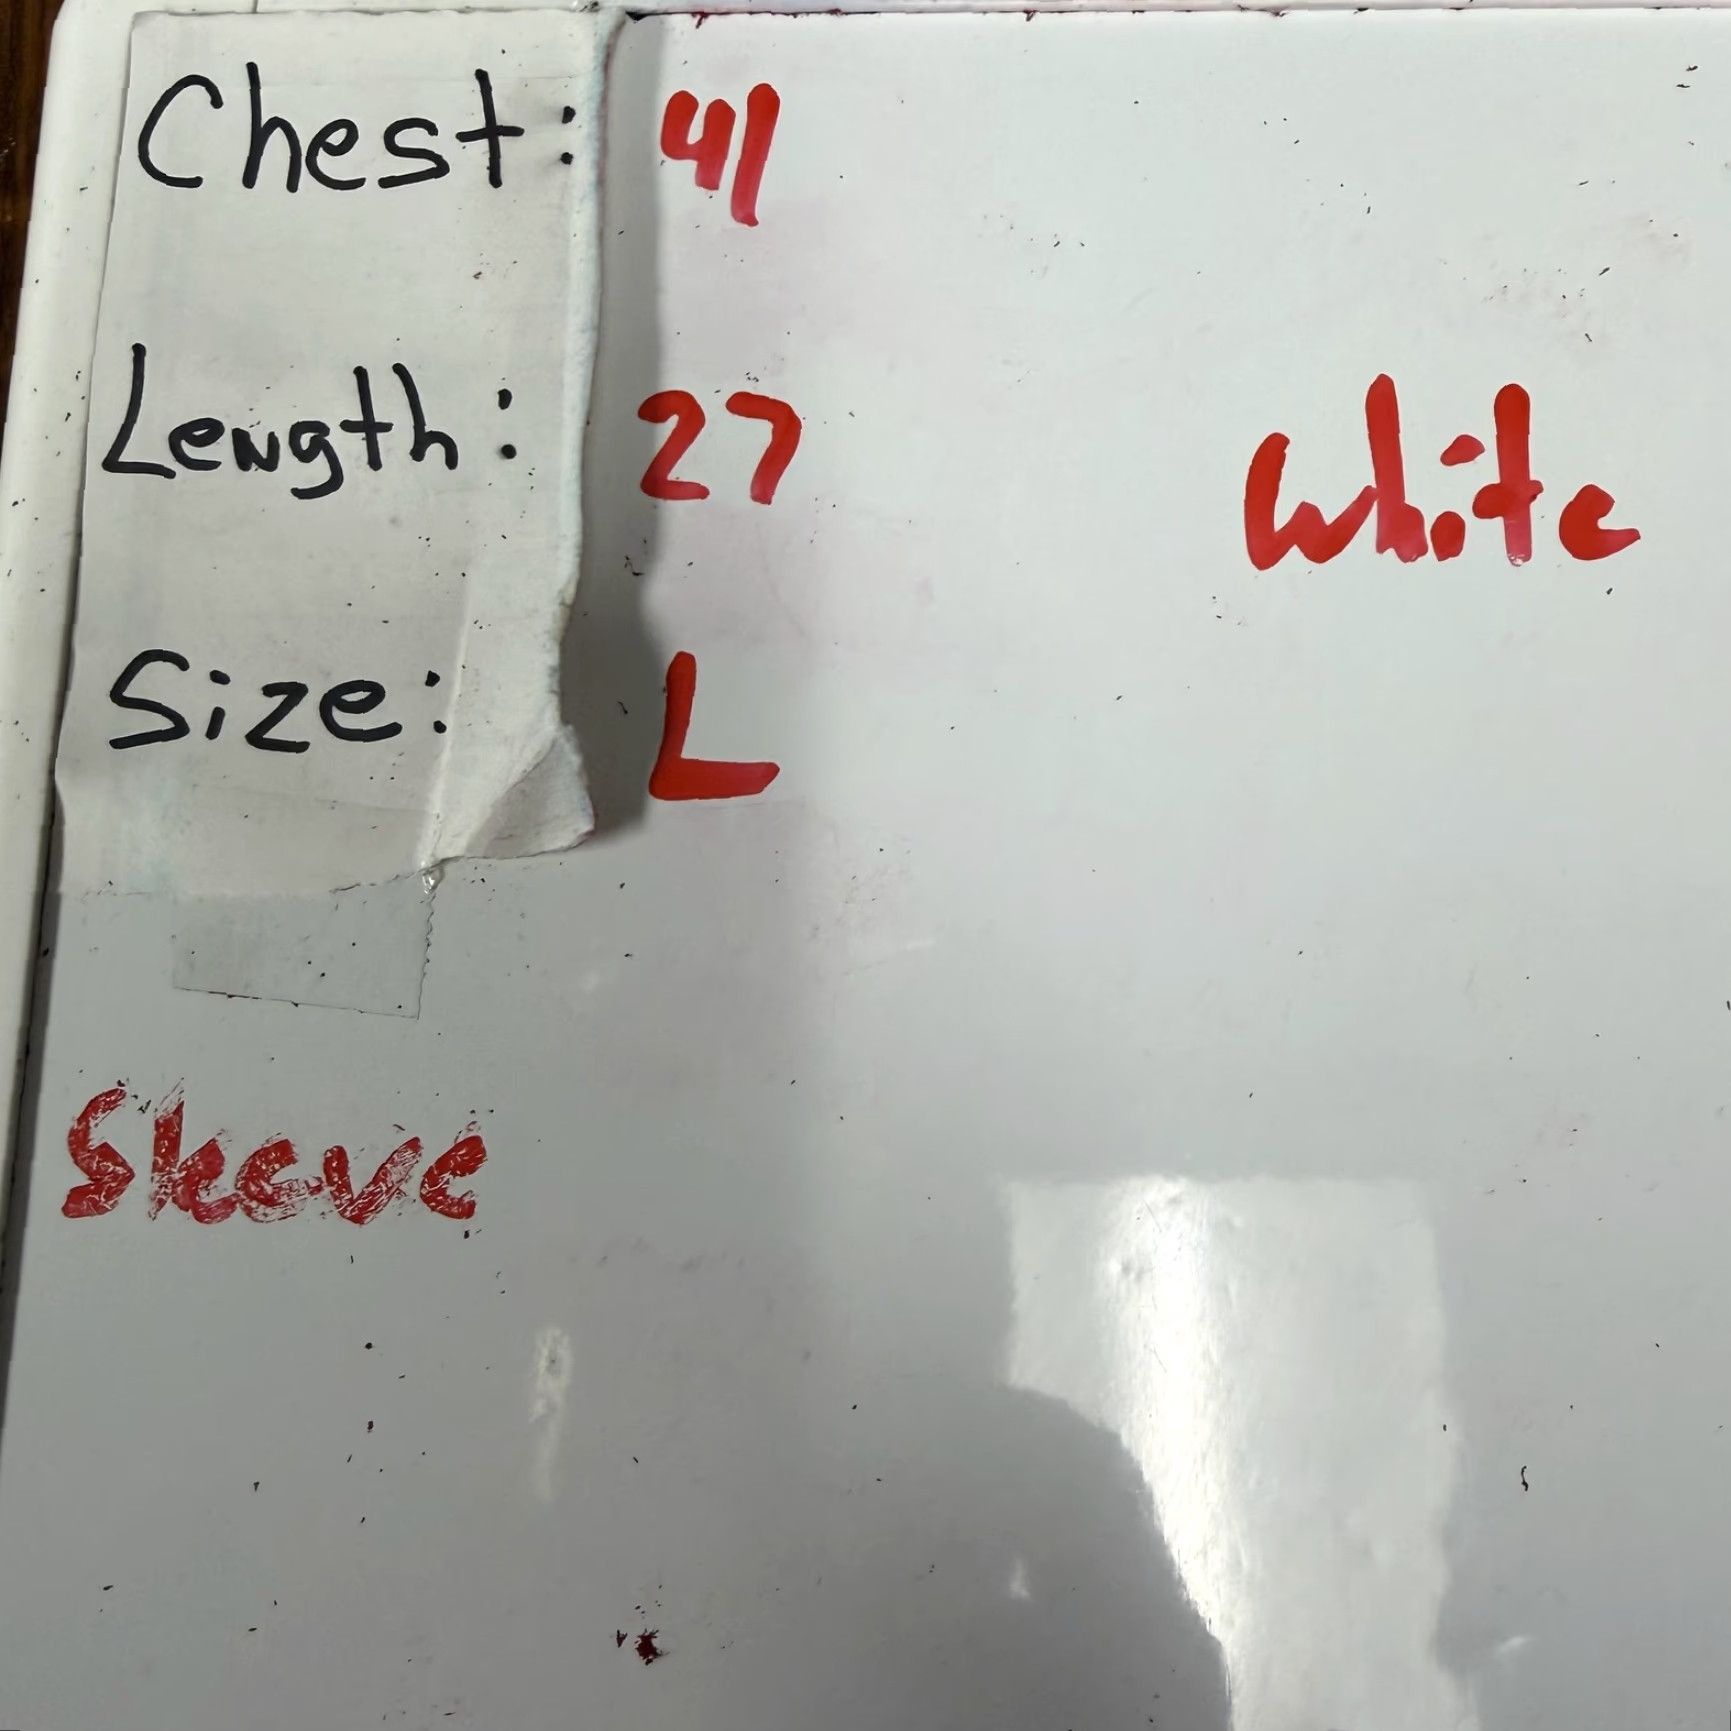 Chest: 41
Length: 27
White
Size: L
Sleeve